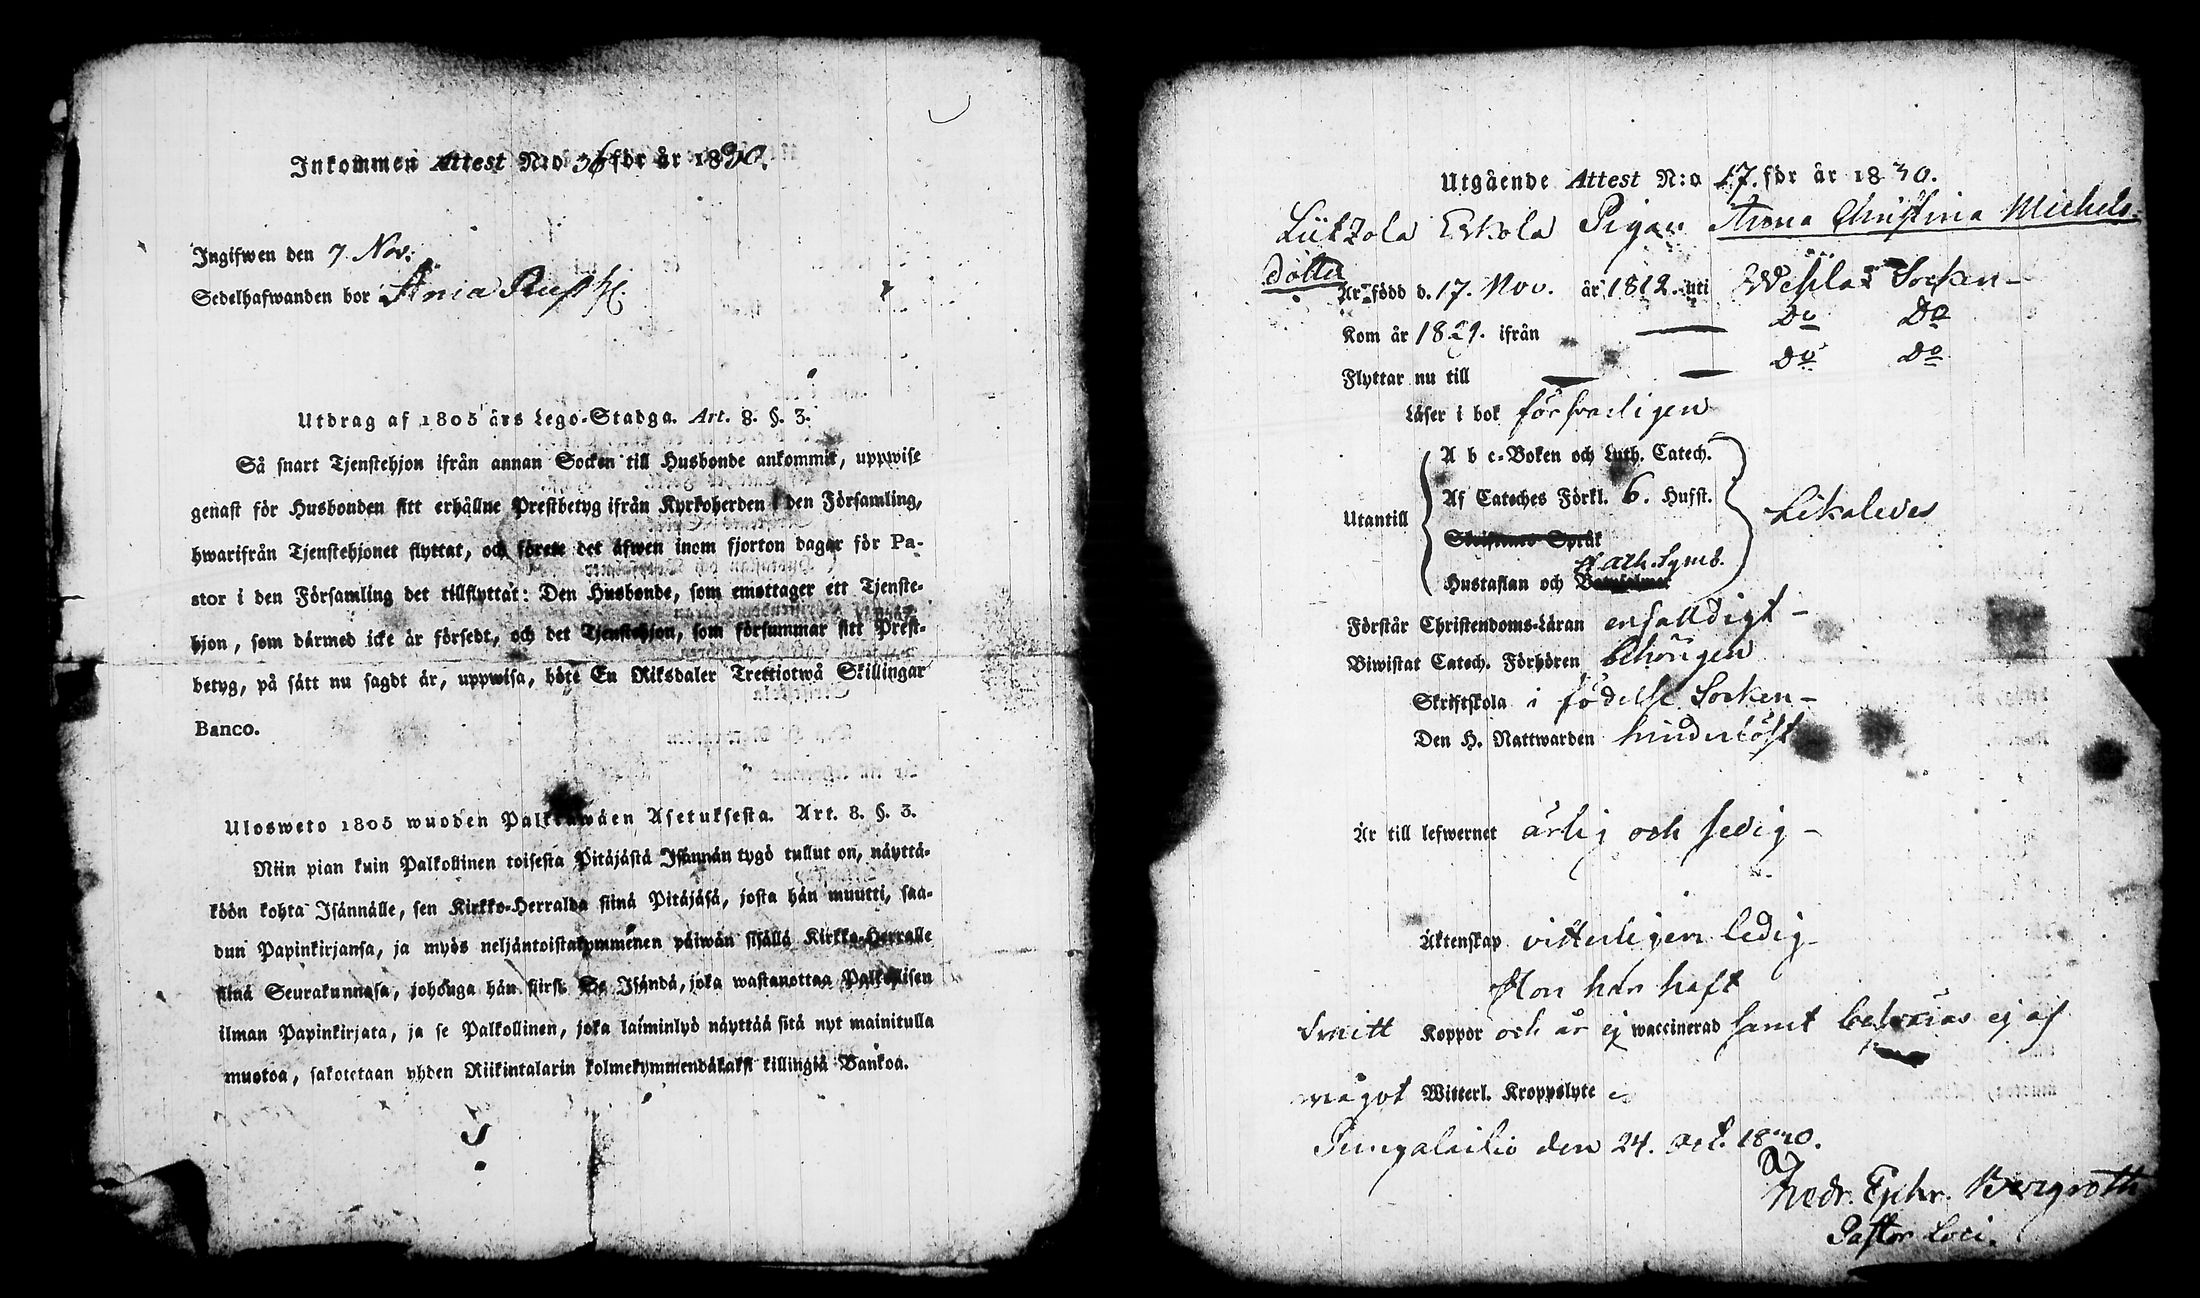 Inkommen Attest N:o 36 för år 1830.
Ingifwen den 7 Nov.
Sedelhafwanden bor
Utdrag af 1805 års Lego-Stadga. Art. 8. §. 3.
Så snart Tjenstehjon ifrån annan Socken till Husbonde ankommit, uppwise
genast för Husbonden sitt erhållne Prestbetyg ifrån Kyrkoherden i den Församling,
hwarifrån Tjenstehjonet flyttat, och förete det äfwen inom fjorton dagar för Pa-
stor i den Församling det tillflyttat: Den Husbonde, som emottager ett Tjenste-
hjon, som därmed icke är försedt, och det Tjenstehjon, som försummar sitt Prest-
betyg, på sätt nu sagdt är, uppwisa, böte En Riksdaler Trettiotwå Skillingar
Banco.
Ulosweto 1805 wuoden Palkkawäen Asetuksesta. Art. 8. §. 3.
Niin pian kuin Palkollinen toisesta Pitäjästä Isännän tygö tullut on, näyttä-
köön kohta Isännälle, sen Kirkko-Herralda siinä Pitäjäsä, josta hän muutti, saa-
dun Papinkirjansa, ja myös neljäntoistakymmenen päiwän sisällä Kirkko-Herralle
siinä Seurakunnasa, johonga hän siirsi. Se Isändä, joka wastanottaa Palkollisen
ilman Papinkirjata, ja se Palkollinen, joka laiminlyö näyttää sitä nyt mainitulla
muotoa, sakotetaan yhden Riikintalarin kolmekymmendäkaksi killingiä Bankoa.
Utgående Attest N:o 17. för år 1830.
Lükzola Eskola Pigan Anna Christina Michels-
dotter
Är född d. 17. Nov. år 1812. uti Wesilax Socken –
Kom år 1829. ifrån — Do Do
Flyttar nu till — — Do Do
Läser i bok försvarligen
A b c-Boken och Luth. Catech.
Af Cateches Förkl. 6. Hufst.
Utantill Likaledes
Skriftenes Språk
Ath. Symb.
Hustaflan och
Förstår Christendoms-Läran enfalldigt –
Biwistat Catech. Förhören behörigen
Skriftskola i födelse Socken –
Den H. Nattwarden hinderlöst
Är till lefwernet ärlig och sedig –
Äktenskap vitterligen ledig –
Hon har haft
Smitt Koppor och är ej waccinerad samt besväras ej af
något Witterl. Kroppslyte
Pungalaitio den 24. Oct. 1830.
Fredr. Ephr. Bergroth
Pastor Loci.